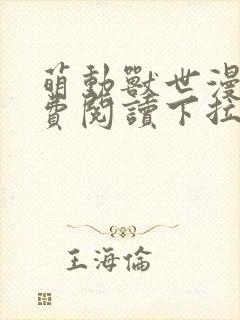 萌動獸世漫
費閱讀下拉
王海倫